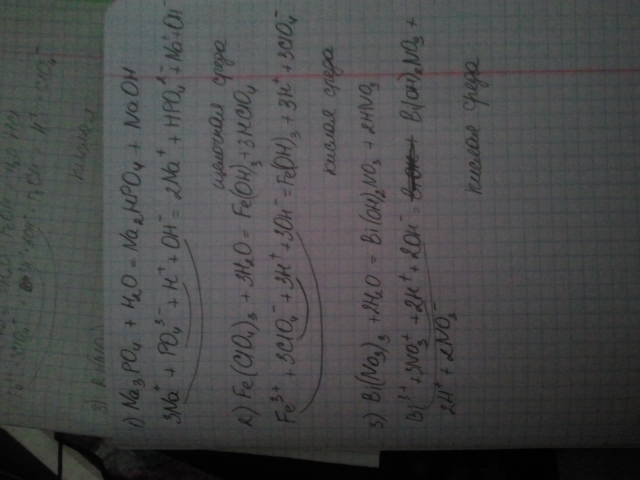 1) Na₃PO₄ + H₂O = Na₂HPO₄ + NaOH
3Na⁺ + PO₄³⁻ + H⁺ + OH⁻ = 2Na⁺ + HPO₄²⁻ + Na⁺ + OH⁻
щелочная среда
2) Fe(ClO₄)₃ + 3H₂O = Fe(OH)₃ + 3HClO₄
Fe³⁺ + 3ClO₄⁻ + 3H⁺ + 3OH⁻ = Fe(OH)₃ + 3H⁺ + 3ClO₄⁻
кислая среда
3) Bi(NO₃)₃ + 2H₂O = Bi(OH)₂NO₃ + 2HNO₃
Bi³⁺ + 3NO₃⁻ + 2H⁺ + 2OH⁻ = Bi(OH)₂NO₃ +
2H⁺ + 2NO₃⁻
кислая среда